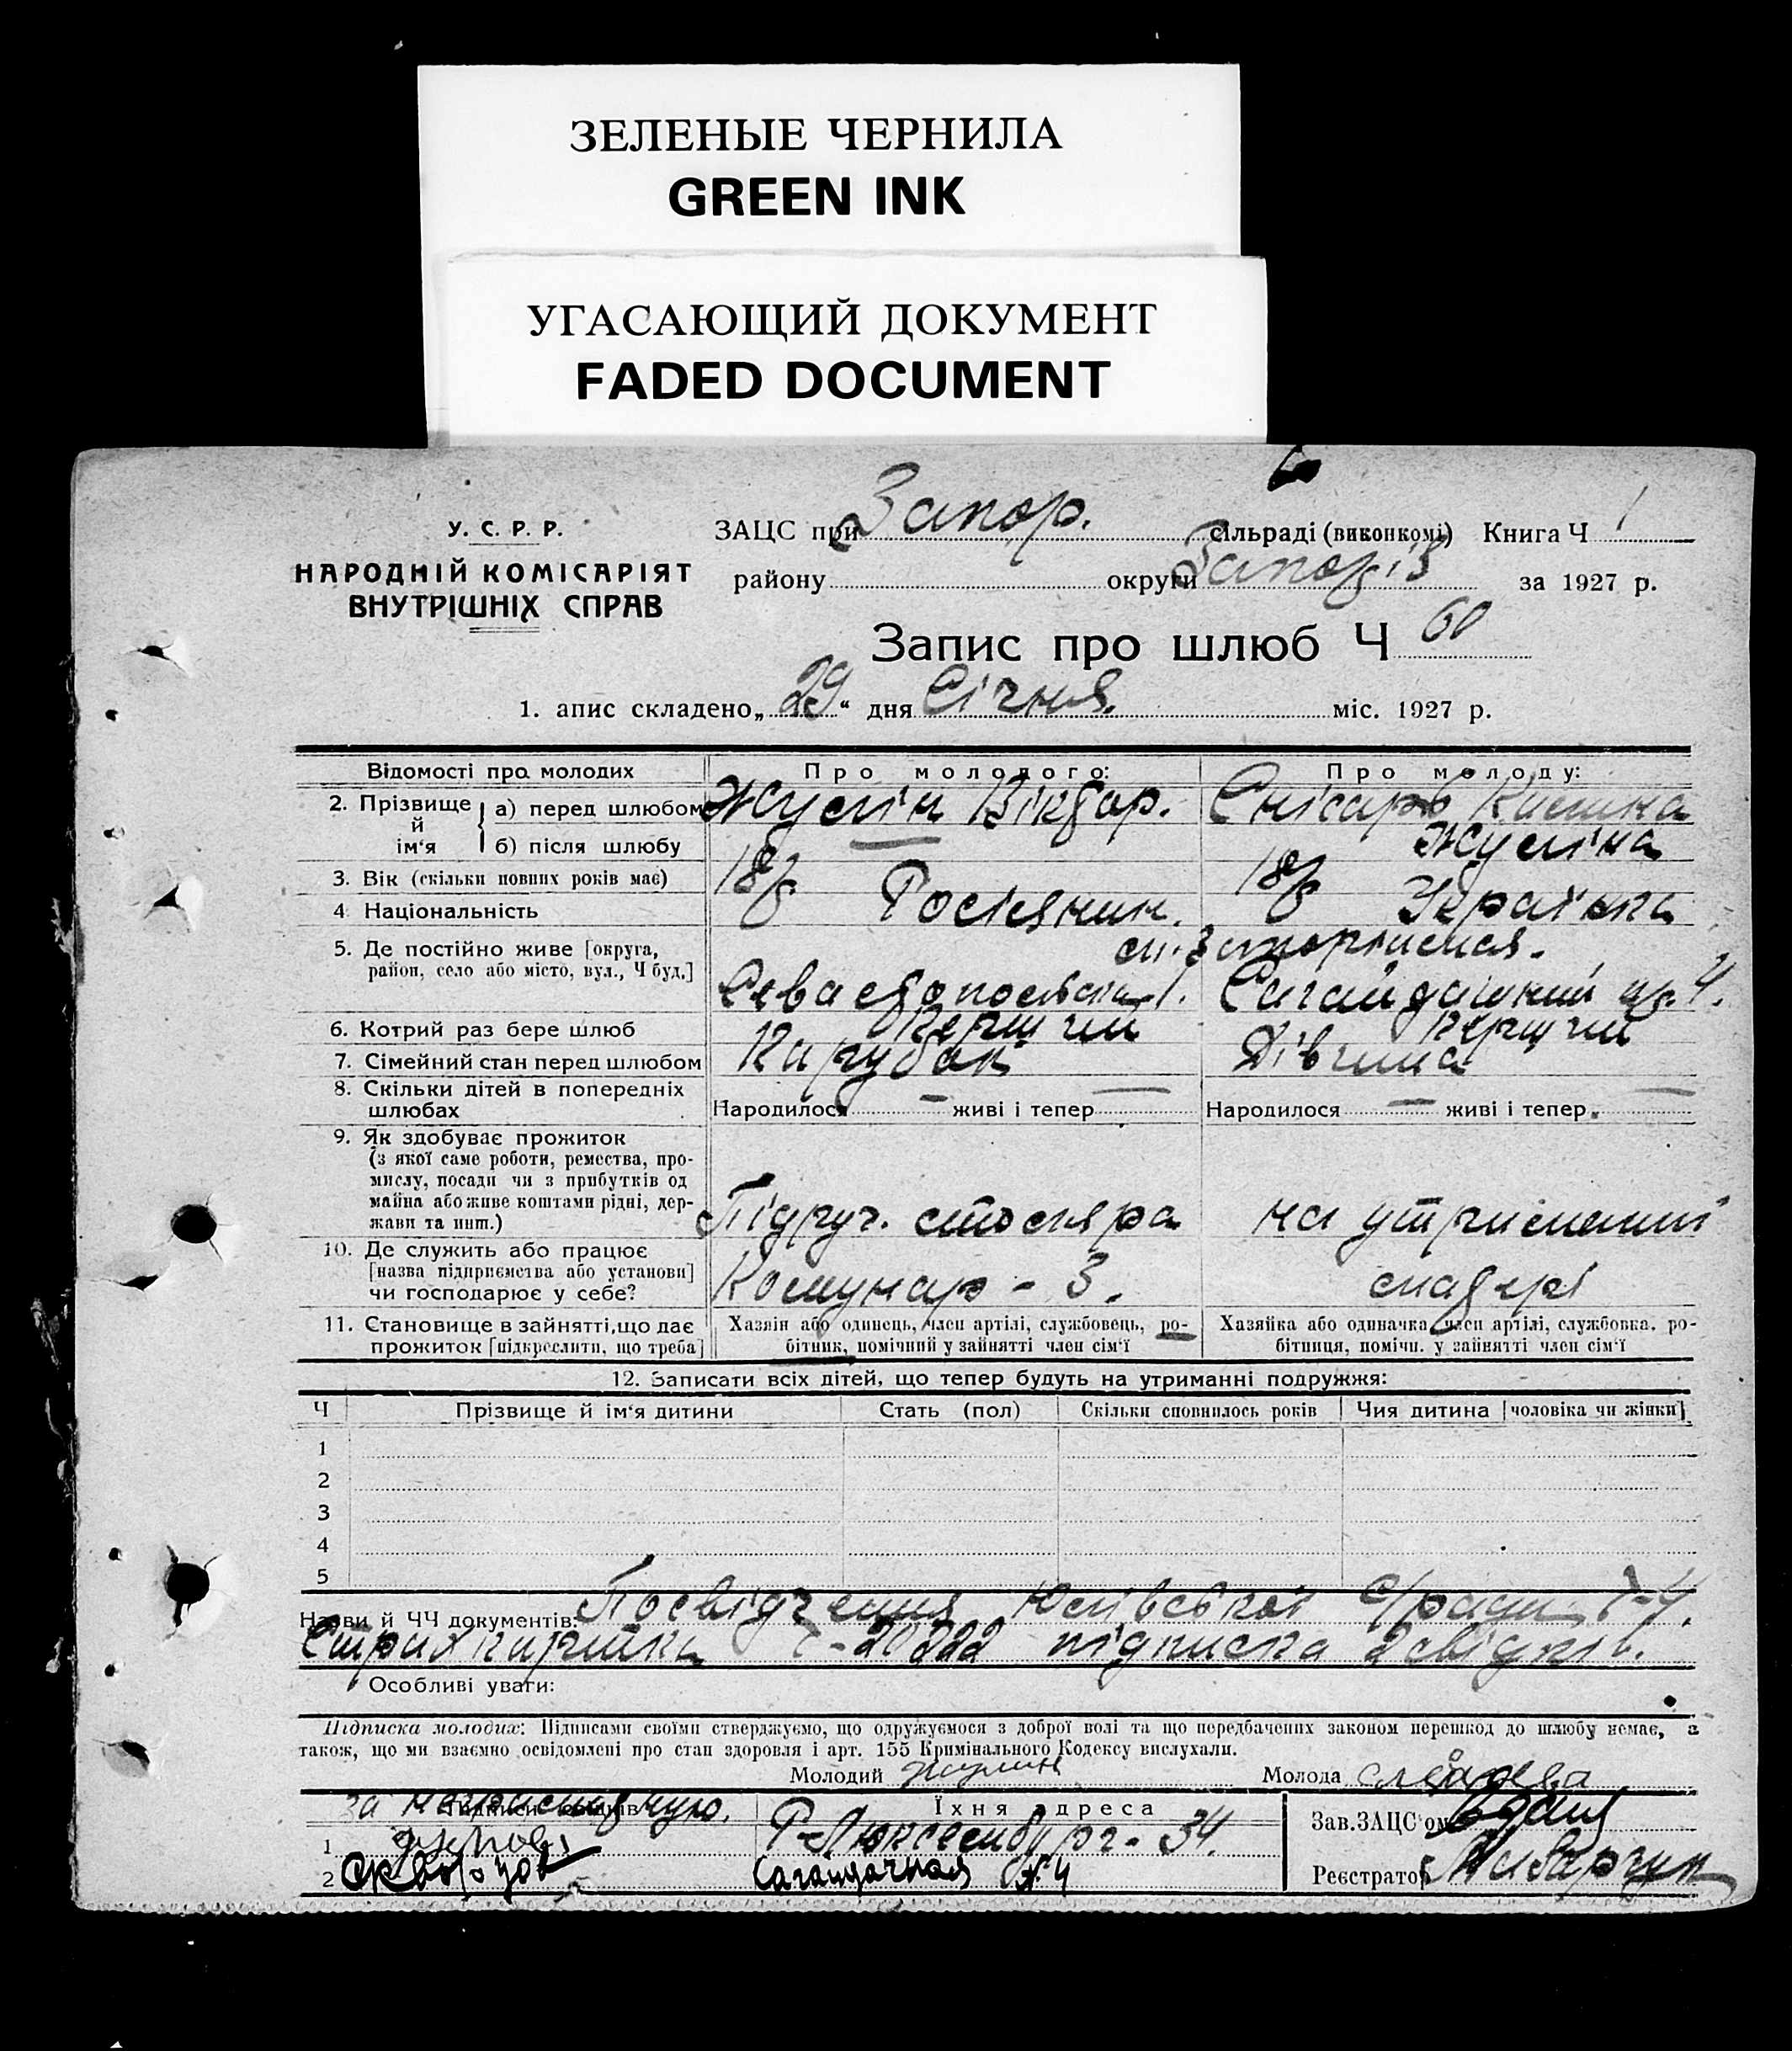 ЗЕЛЕНЫЕ ЧЕРНИЛА
GREEN INK
УГАСАЮЩИЙ ДОКУМЕНТ
FADED DOCUMENT
У. С. Р. Р.
НАРОДНІЙ КОМІСАРІЯТ
ВНУТРІШНІХ СПРАВ
ЗАЦС при Запор. сільраді (виконкомі) Книга Ч 1
району округи Запоріз за 1927 р.
Запис про шлюб Ч 60
1. апис складено „29“ дня Січня. міс. 1927 р.
Відомості про молодих Про молодого: Про молоду:
2. Прізвище й ім'я а) перед шлюбом Жулін Віктор. Снісарь
б) після шлюбу Жуліна
3. Вік (скільки повних років має) 18 18
4. Національність Росіянин. Українка
5. Де постійно живе [округа, район, село або місто, вул., Ч буд.]
м. Запоріжжя.
Севастопольська 1. Сагайдачний 4.
6. Котрий раз бере шлюб Перший Перший
7. Сімейний стан перед шлюбом Парубок Дівчина
8. Скільки дітей в попередніх шлюбах Народилося — живі і тепер — Народилося — живі і тепер —
9. Як здобуває прожиток
(з якої саме роботи, ремества, про-
мислу, посади чи з прибутків од
майна або живе коштами рідні, дер-
жави та инш.) Підруч. столяра на утриманні
10. Де служить або працює
[назва підприємства або установи]
чи господарює у себе? Комунар - 3. матері
11. Становище в зайнятті, що дає
прожиток [підкреслити, що треба]
Хазяїн або одинець, член артілі, службовець, ро-
бітник, помічний у зайнятті член сім'ї
Хазяйка або одиначка член артілі, службовка, ро-
бітниця, помічн. у зайнятті член сім'ї
12. Записати всіх дітей, що тепер будуть на утриманні подружжя:
Ч Прізвище й ім'я дитини Стать (пол) Скільки сповнилось років Чия дитина [чоловіка чи жінки]
1
2
3
4
5
Назви й ЧЧ документів: Посвідчення С/ради Ч-4.
Страхкартка Ч-20222 підписка 2 свідків.
Особливі уваги:
Підписка молодих: Підписами своїми стверджуємо, що одружуємося з доброї волі та що передбачених законом перешкод до шлюбу немає, а
також, що ми взаємно освідомлені про стан здоровля і арт. 155 Кримінального Кодексу вислухали.
Молодий Жулин Молода
за неграмотную. Підписи свідків Їхня адреса Зав. ЗАЦС'ом
1 Р-Люксембург - 34.
2 Скворцов Сагайдачная №4 Реєстратор